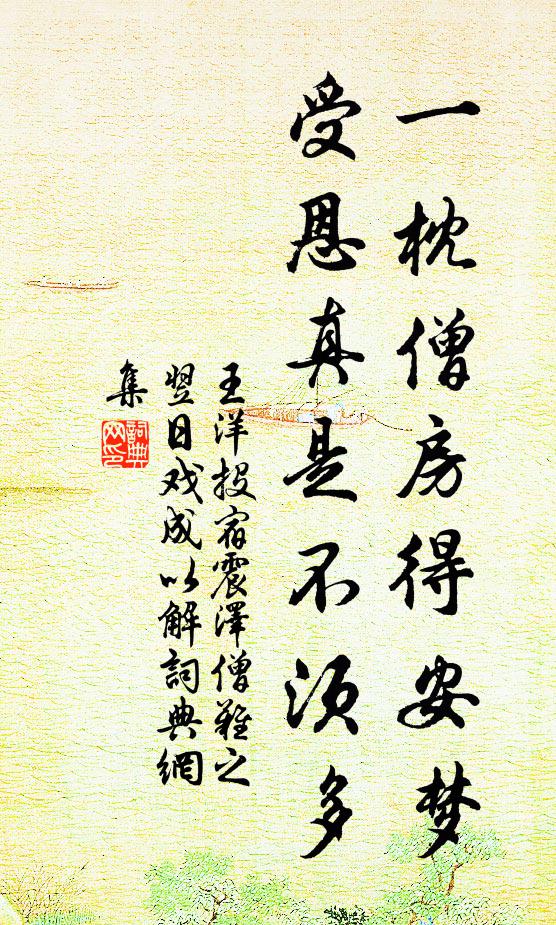 一枕僧房得安梦
受恩真是不须多
王洋投宿震澤僧難之
翌日戏成以解詞典網
集
詞典
网印